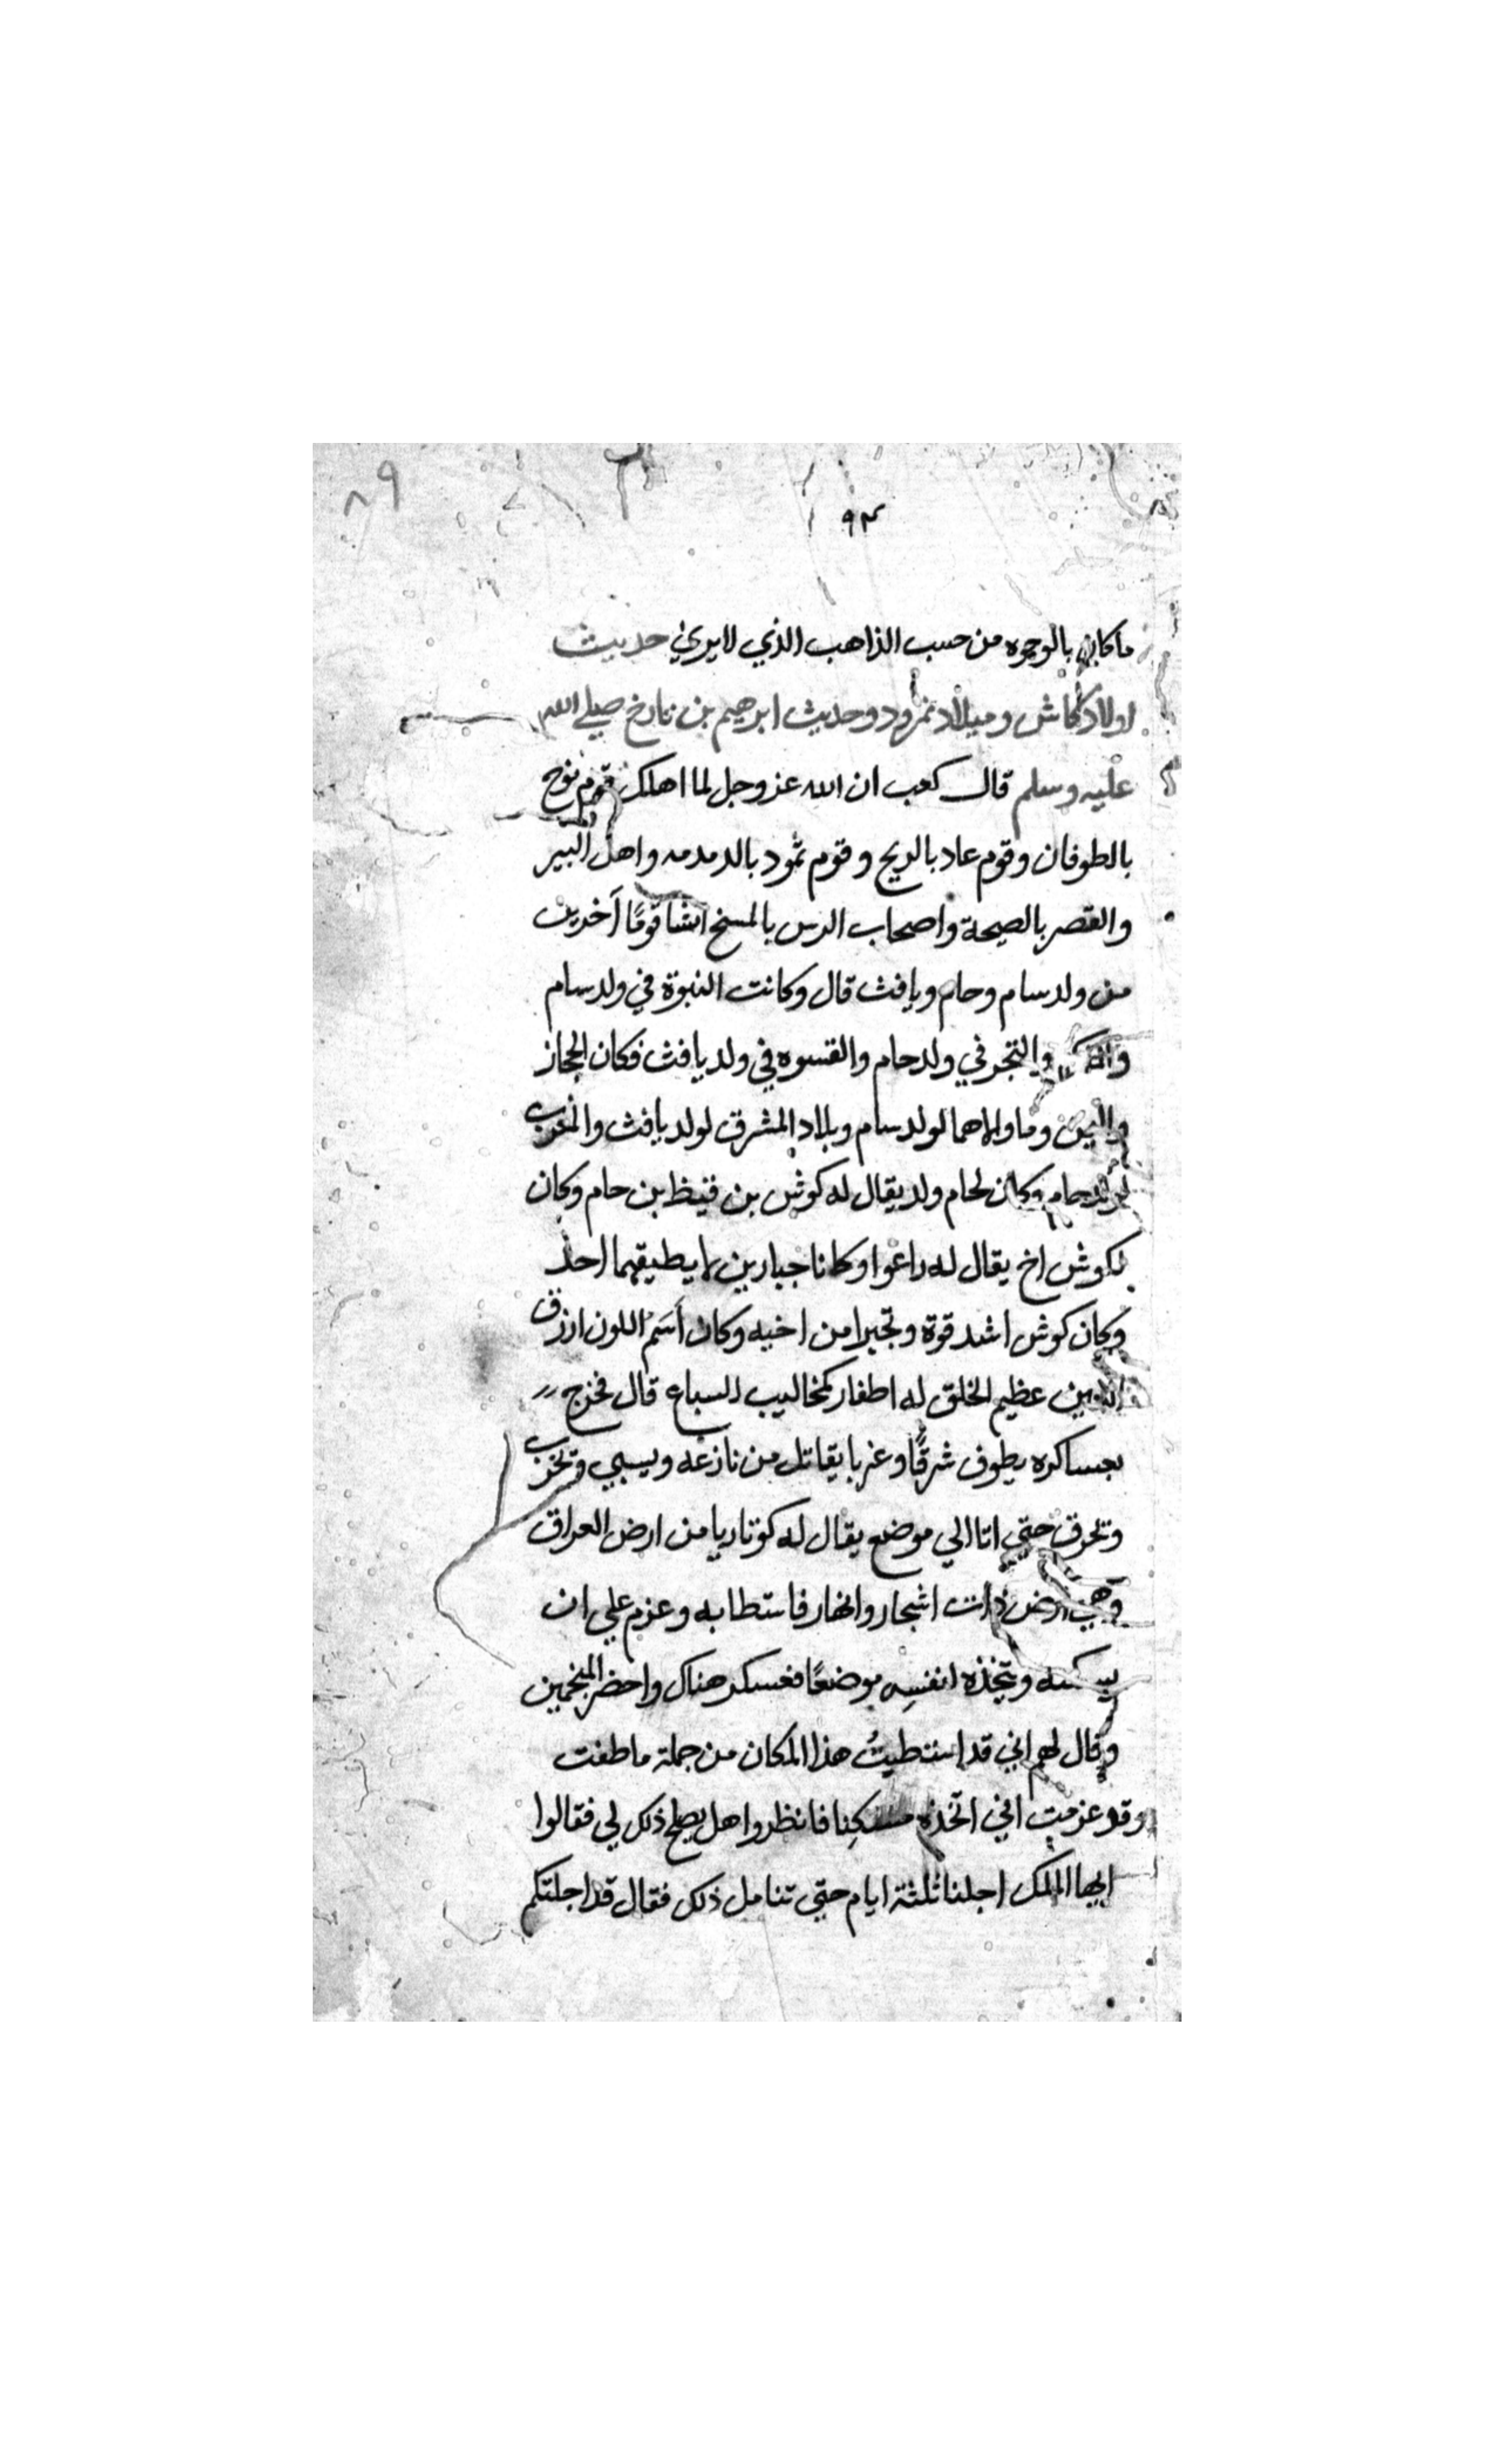 ٨٩
٩٣
ما كان بالوجوه من حسب الذاهب الذي لا يري حديث
اولاد كاش وميلاد نمرود وحديث ابرهيم بن تارخ صلي الله
عليه وسلم قال كعب ان الله عز وجل لما اهلك قوم نوح
بالطوفان وقوم عاد بالريح وقوم ثمود بالدمدمه واهل البير
والقصر بالصيحة واصحاب الرس بالمسخ انشا قومًا آخرين
من ولد سام وحام ويافث قال وكانت النبوة في ولد سام
والتجر في ولد حام والقسوه في ولد يافث فكان الحجاز
واليمن وما والاهما لولد سام وبلاد المشرق لولد يافث والمغرب
لولد حام وكان لحام ولد يقال له كوش بن قنيظ بن حام وكان
لكوش اخ يقال له راعوا وكانا جبارين لا يطيقهما احد
وكان كوش اشد قوة وتجبرا من اخيه وكان أسَم اللون ازرق
العينين عظيم الخلق له اظفار كمخاليب السباع قال فخرج
بعساكره يطوف شرقًا وغربا يقاتل من نازعه ويسبي وتخرب
وتحرق حتي اتا الي موضع يقال له كوتاريا من ارض العراق
وهي ارض ذات اشجار وانهار فاستطابه وعزم علي ان
يسكنه ويتخذه لنفسِه موضعًا فعسكر هناك واحضر المنجمين
وقال لهم اني قد استطيبتُ هذا المكان من جملة ما طفت
وقد عزمت اني اتخذه مسكنِا فانظروا هل يصلح ذلك لي فقالوا
ايها الملك اجلنا ثلثة ايام حتي نتامل ذلك فقال قد اجلتكم